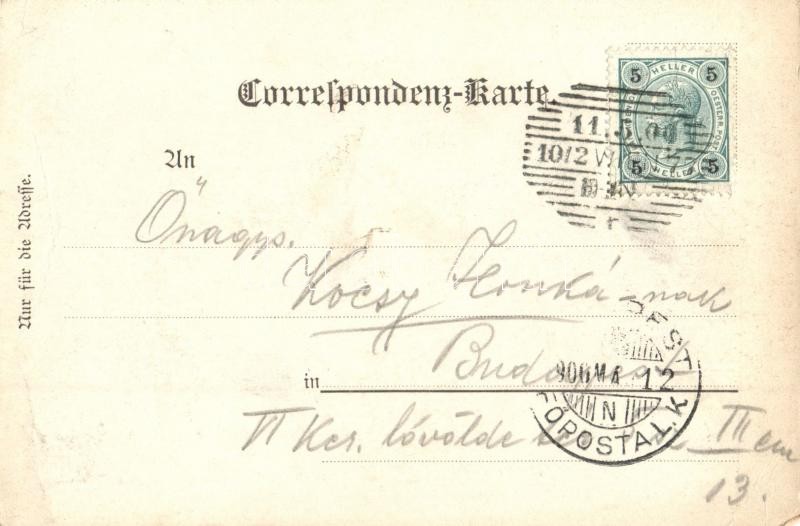 Correspondenz-Karte.
5 HELLER 5
5 HELLER 5
OESTERR. POST
11.5.00
10/2 W
An
Önagys.
Kocsy Ilonká-nak
in Budapest
PEST
900 MÁ 12
N
FŐPOSTA L.K.
VI Ker. lövölde III em
13.
Nur für die Adresse.